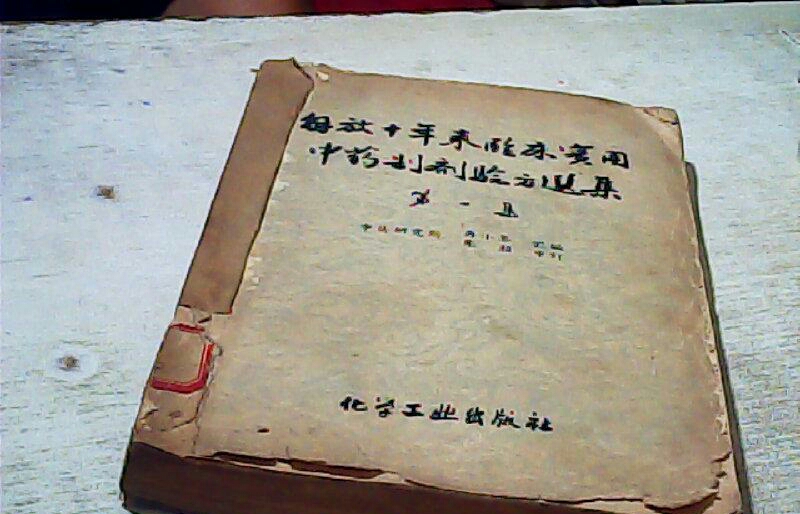 解放十年来临床实用
中药制剂验方选集
第一集
中医研究院
化学工业出版社